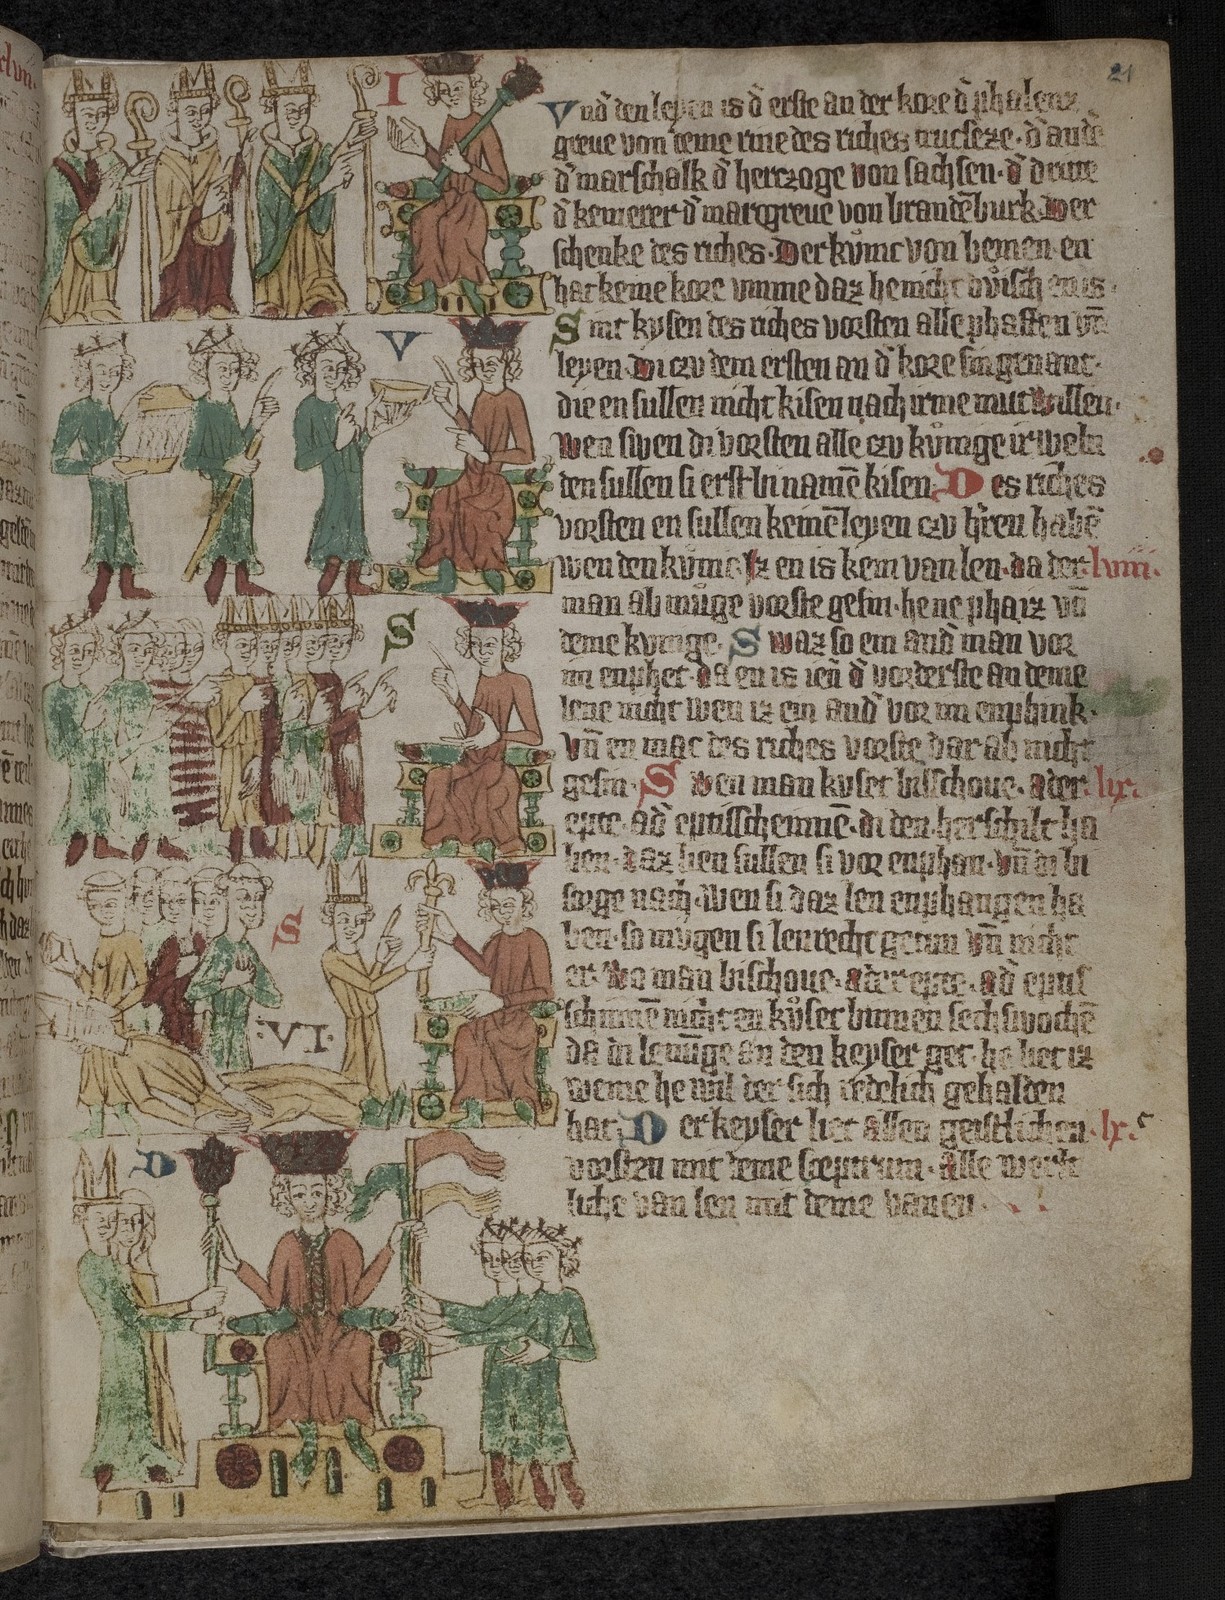 21
I
Vnd̄ den leyen is d̄ erste an der kore d̄ phalenz
greue von deme rine des riches trucseze · d̄ and̄e
d̄ marschalk d̄ hertzoge von sachsen · d̄ dritte
d̄ kemerer d̄ marcgreue von brandēburk · Der
schenke des riches · Der kvͦnic von bemen en
hat keine kore vmme daz he nicht dvͦtsch en is ·
Sint kysen des riches vorsten alle phaffen vn̄
leyen · Di czv dem ersten an d̄ kore sin genant ·
die en sullen nicht kisen nach irme mutwillen ·
Wen swen di vorsten alle czv kvͦnige irweln
den sullen si erst bi namē kisen · Des riches
vorsten en sullen keinē leyen czv h̄ren habē
wen den kvͦnic · Iz en is kein van len · da der · lviii ·
man ab mvge vorste gesin · he ne phaiz vō
deme kvnige · Swaz so ein and̄ man vor
im enphet · da en is ien̄ d̄ vorderste an deme
lene nicht wen iz ein and̄ vor im enphink ·
vn̄ en mac des riches vorste dar ab nicht
gesin · Swen man kyset bisschoue · ader · lix ·
epte · ad̄ eptisschennē · di den herschilt ha
ben · daz len sullen si vor enphan · vn̄ di bi
sorge nach · Wen si daz len enphangen ha
ben · so mvgen si lenrecht getun vn̄ nicht
er · Wo man bischoue · ader epte · ad̄ eptis
schinnē nicht en kvͦset binnen sechs wochē
da di lenūge an den keyser get · he liet iz
weme he wil der sich redelich gehalden
hat · Der keyser liet allen geistlichen · lx ·
vorsten mit deme sceptrum · Alle werlt
liche van len mit deme vanen ·
V
S
S
· VI ·
D